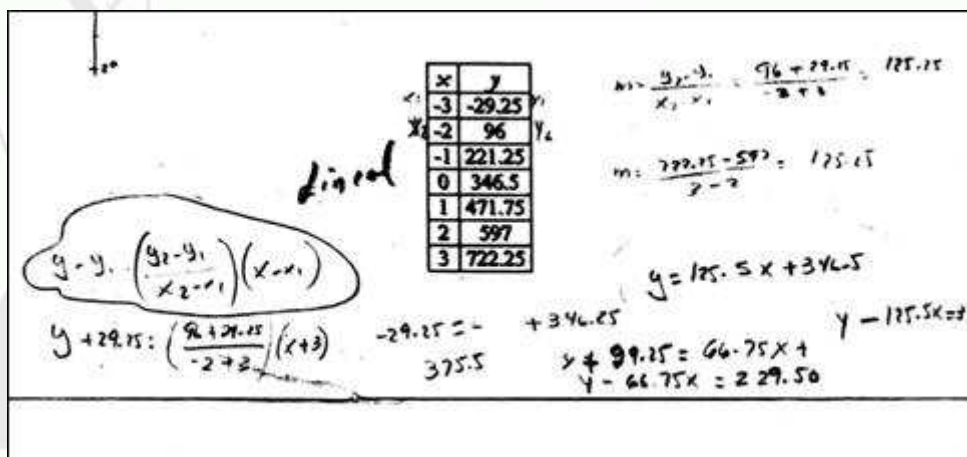 x y
x₁ -3 -29.25 y₁
x₂ -2 96 y₂
-1 221.25
0 346.5
1 471.75
2 597
3 722.25
Lineal
m = (y₂-y₁)/(x₂-x₁) = (96+29.25)/(-2+3) = 125.25
m = (722.25-597)/(3-2) = 125.25
y-y₁ = ((y₂-y₁)/(x₂-x₁))(x-x₁)
y+29.25 = ((96+29.25)/(-2+3))(x+3)
-29.25 = - +346.25
375.5
y=125.5x+346.5
y-125.5x=3
y + 99.25 = 66.75x +
y - 66.75x = 229.50